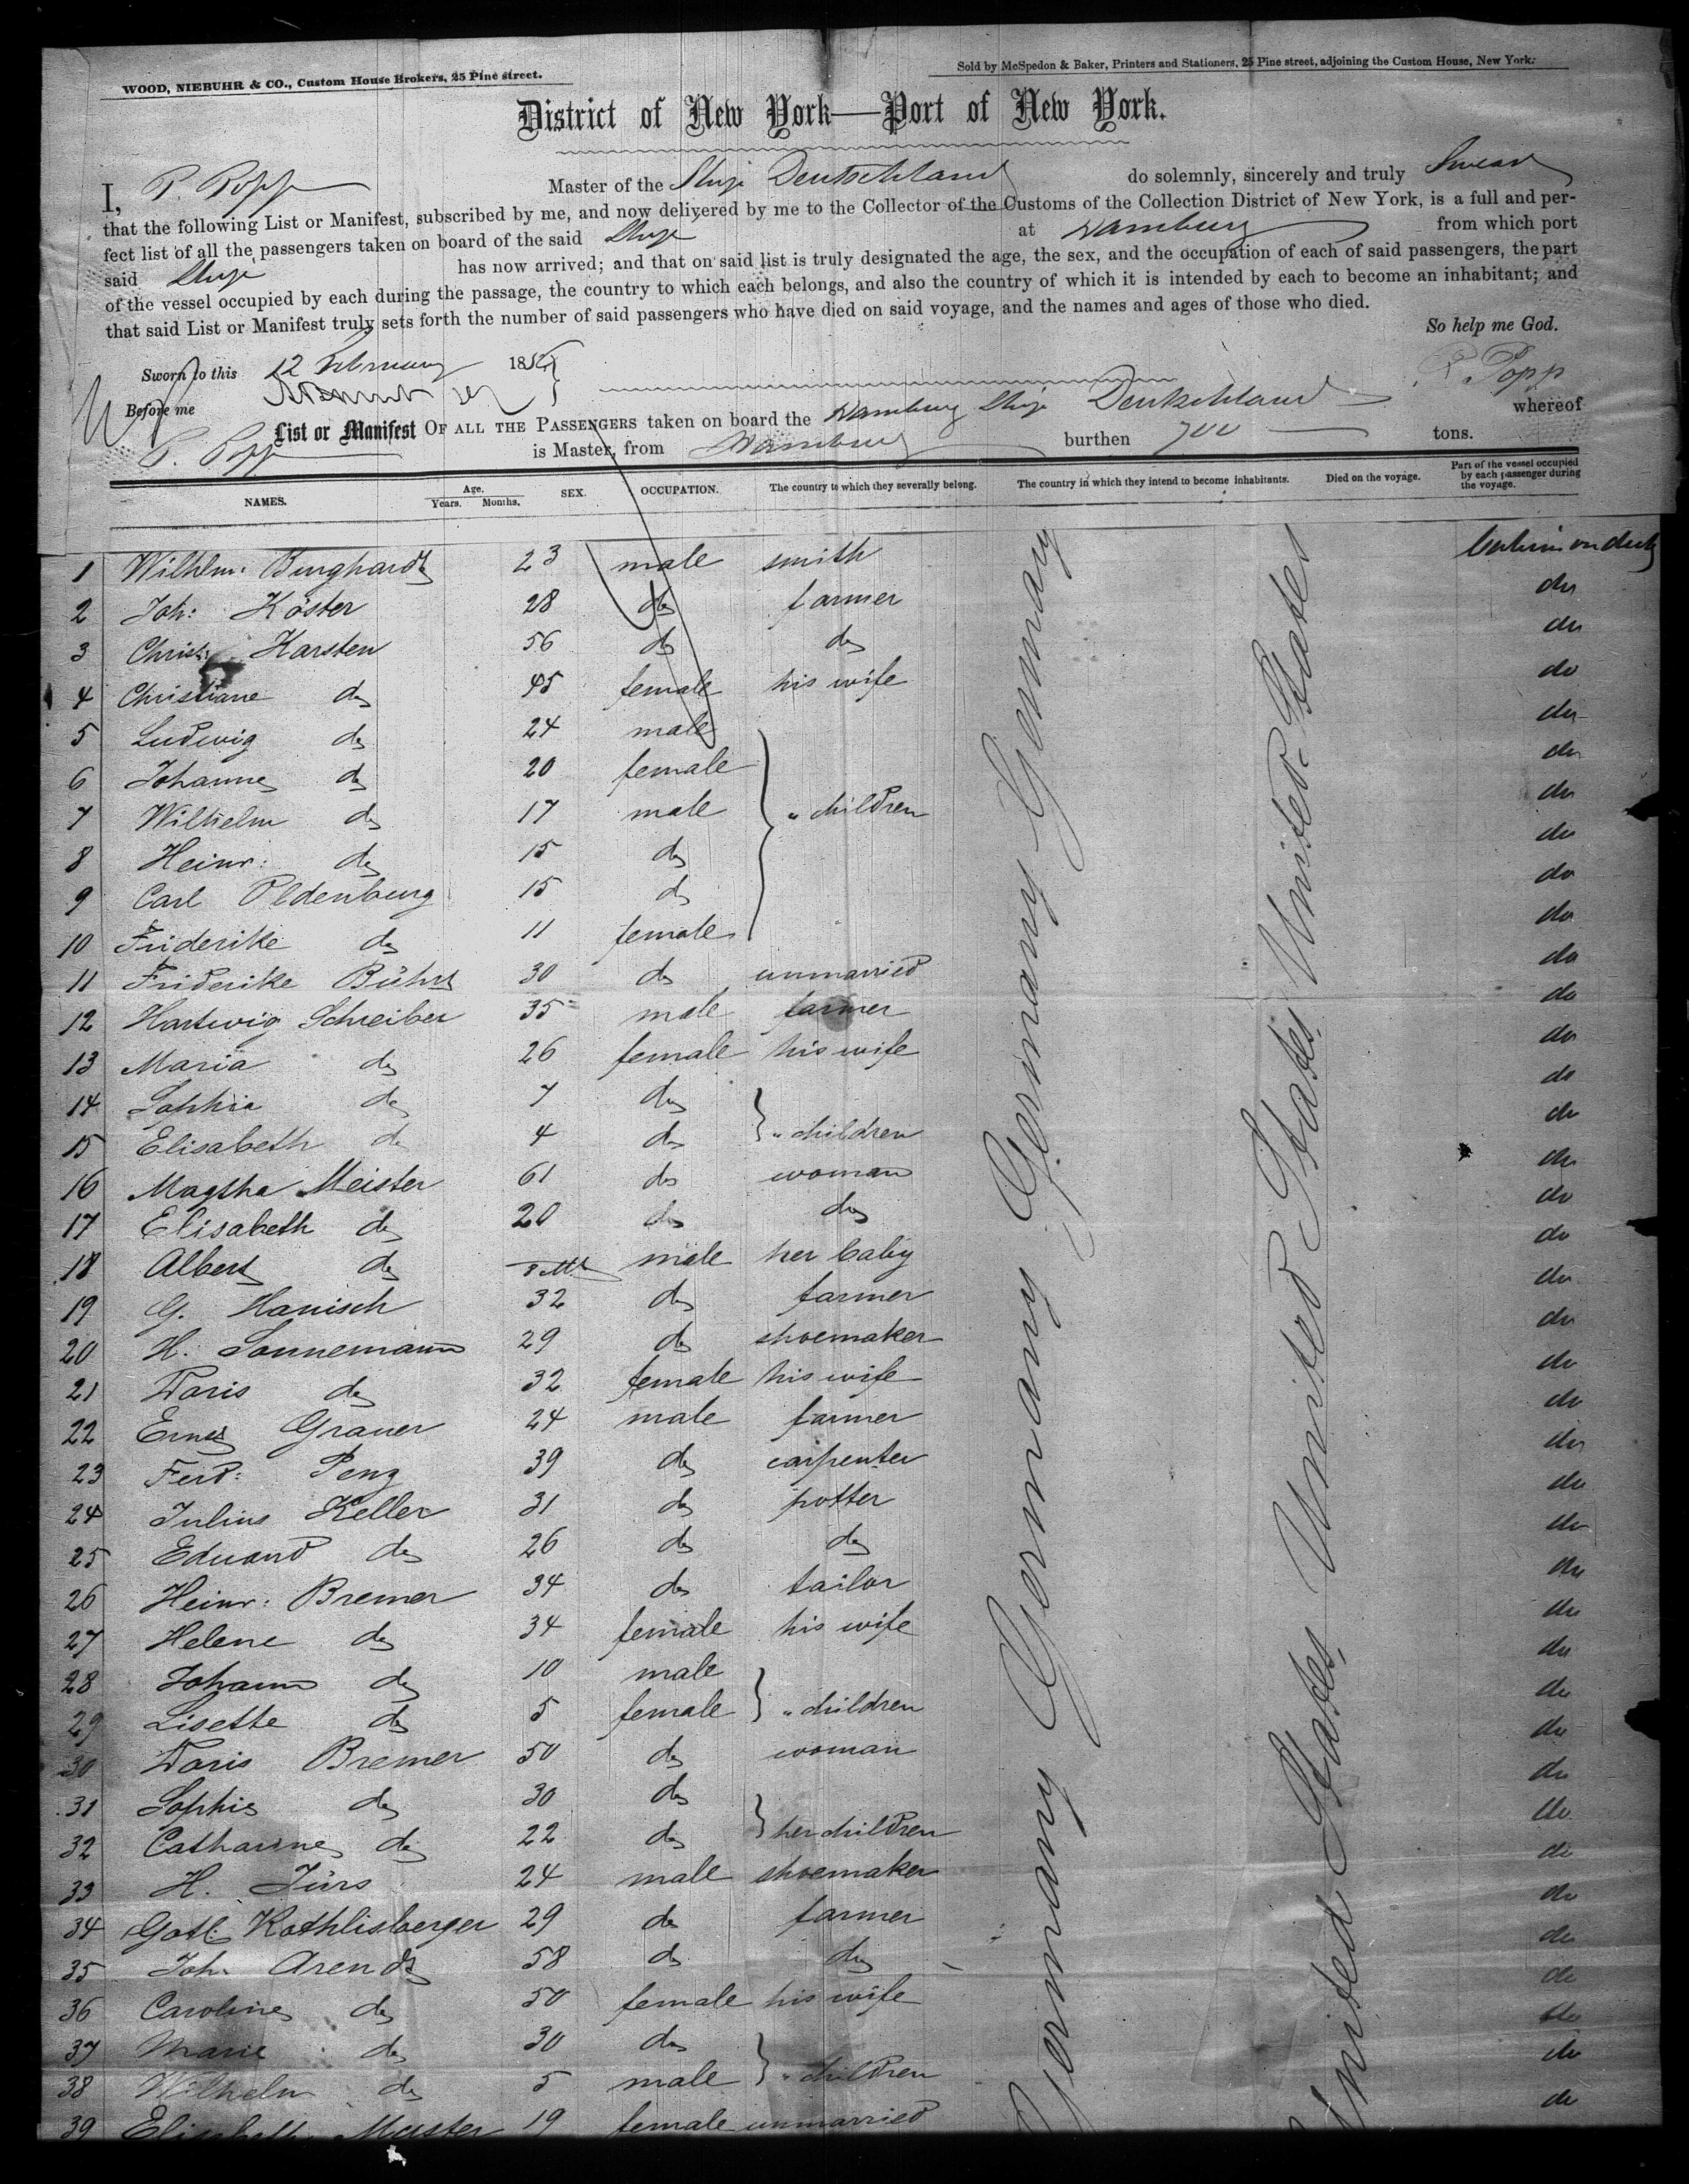 WOOD, NIEBUHR & CO., Custom House Brokers, 25 Pine street.
Sold by McSpedon & Baker, Printers and Stationers, 25 Pine street, adjoining the Custom House, New York.
District of New York—Port of New York.
I, P. Popp Master of the Ship Deutschland do solemnly, sincerely and truly Swear
that the following List or Manifest, subscribed by me, and now delivered by me to the Collector of the Customs of the Collection District of New York, is a full and per-
fect list of all the passengers taken on board of the said Ship at Hamburg from which port
said Ship has now arrived; and that on said list is truly designated the age, the sex, and the occupation of each of said passengers, the part
of the vessel occupied by each during the passage, the country to which each belongs, and also the country of which it is intended by each to become an inhabitant; and
that said List or Manifest truly sets forth the number of said passengers who have died on said voyage, and the names and ages of those who died.
So help me God.
Sworn to this 12 February 185
P. Popp
Before me
List or Manifest OF ALL THE PASSENGERS taken on board the Hamburg Ship Deutschland whereof
P. Popp is Master, from Hamburg burthen 700 tons.
NAMES. Age. Years. Months. SEX. OCCUPATION. The country to which they severally belong. The country in which they intend to become inhabitants. Died on the voyage. Part of the vessel occupied by each passenger during the voyage.
1 Wilhlm: Burghardt 23 male smith on deck
2 Joh: Köster 28 do farmer do
3 Christ: Karsten 56 do do do
4 Christiane do 45 female his wife do
5 Ludwig do 24 male do
6 Johanne do 20 female do
7 Wilhelm do 17 male " children do
8 Heinr: do 15 do do
9 Carl Oldenburg 15 do do
10 Friderike do 11 female do
11 Friderike Bührs 30 do unmarried do
12 Hartwig Schreiber 35 male farmer do
13 Maria do 26 female his wife do
14 Sophia do 7 do do
15 Elisabeth do 4 do " children do
16 Magtha Meister 61 do woman do
17 Elisabeth do 20 do do do
18 Albert do 8 Mth male her baby do
19 G. Hanisch 32 do farmer do
20 H. Sonnemann 29 do shoemaker do
21 Doris do 32 female his wife do
22 Ernst Grauer 24 male farmer do
23 Ferd: Penz 39 do carpenter do
24 Julius Keller 31 do potter do
25 Eduard do 26 do do do
26 Heinr: Bremer 34 do tailor do
27 Helene do 34 female his wife do
28 Johann do 10 male do
29 Lisette do 5 female " children do
30 Doris Bremer 50 do woman do
31 Sophie do 30 do do
32 Catharine do 22 do her children do
33 H. Jürs 24 male shoemaker do
34 Gotl: Rothlisberger 29 do farmer do
35 Joh: Arendt 58 do do do
36 Caroline do 50 female his wife do
37 Marie do 30 do do
38 Wilhelm do 5 male " children do
39 Elisabeth Meister 19 female unmarried do
Germany Germany Germany Germany Germany
United States United States United States United States